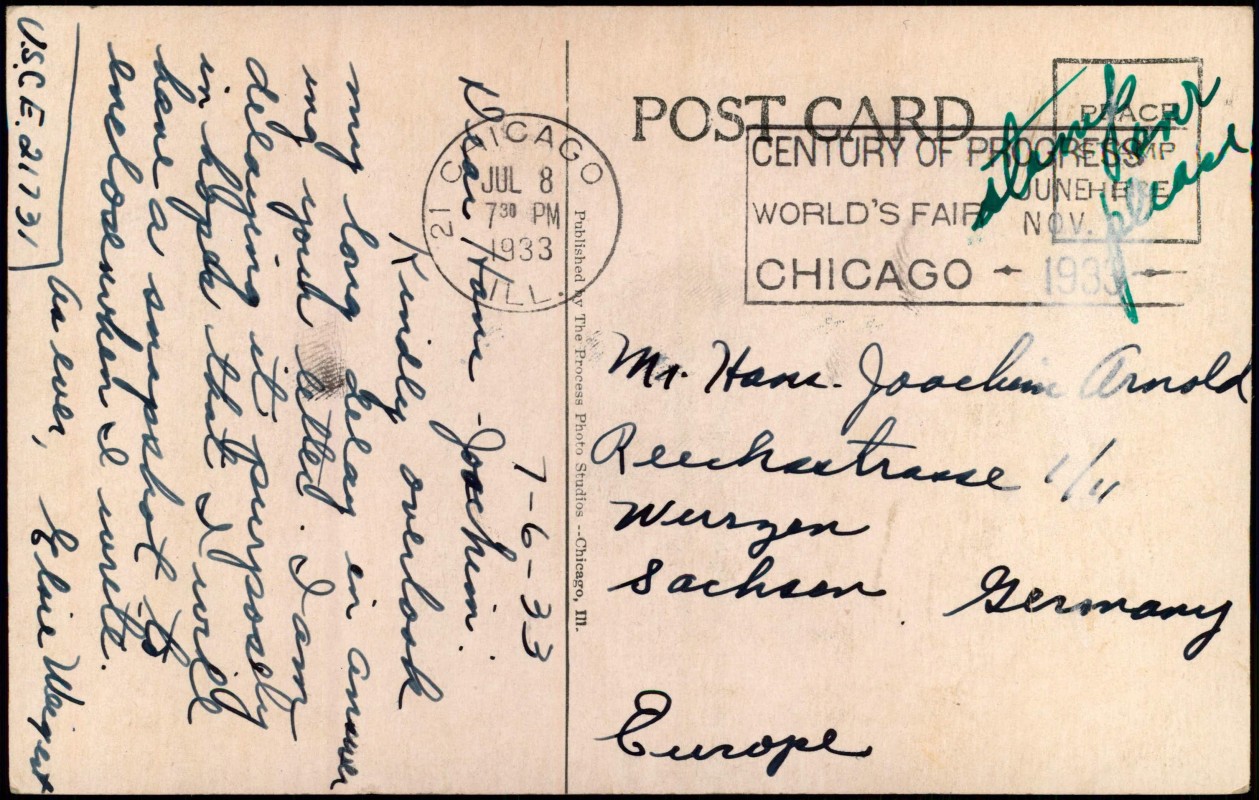 POST CARD
PLACE
STAMP
HERE
CHICAGO
JUL 8
7 30 PM
1933
21 ILL.
CENTURY OF PROGRESS
WORLD'S FAIR
JUNE
NOV.
CHICAGO - 1933 -
please
Mr. Hans-Joachim Arnold
1/II
Wurzen
Sachsen Germany
Europe
Published by The Process Photo Studios--Chicago, Ill.
7-6-33
Dear Hans-Joachim.
Kindly overlook
my long delay in answer
ing your letter. I am
delaying it purposely
in hopes that I will
have a snapshot to
enclose when I write.
As ever, Elsie Weigert
U.S.C.E. 21731